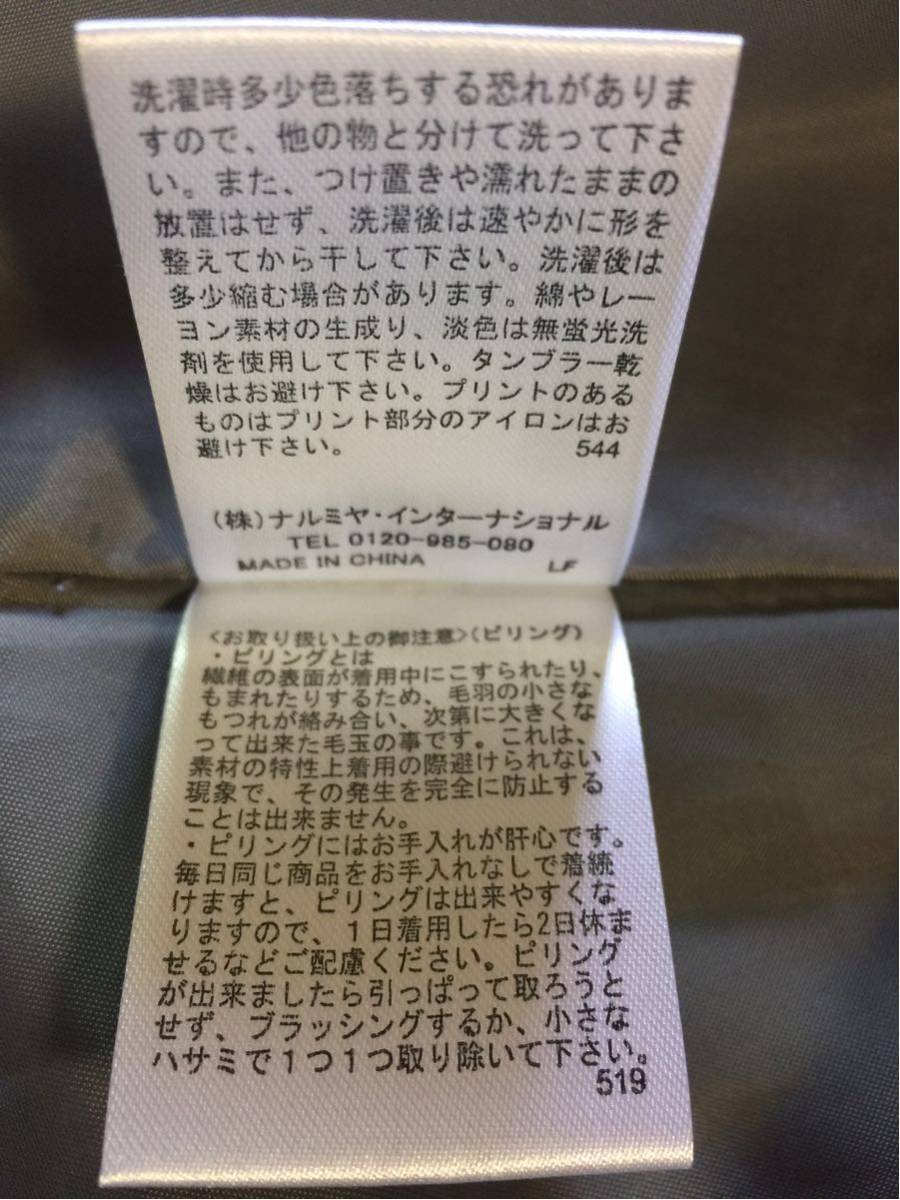 洗濯時多少色落ちする恐れがありま
すので、他の物と分けて洗って下さ
い。また、つけ置きや濡れたままの
放置はせず、洗濯後は速やかに形を
整えてから干して下さい。洗濯後は
多少縮む場合があります。綿やレー
ヨン素材の生成り、淡色は無蛍光洗
剤を使用して下さい。タンブラー乾
燥はお避け下さい。プリントのある
ものはプリント部分のアイロンはお
避け下さい。 544
(株)ナルミヤ・インターナショナル
TEL 0120-985-080
MADE IN CHINA LF
<お取り扱い上の御注意>(ピリング)
・ピリングとは
繊維の表面が着用中にこすられたり、
もまれたりするため、毛羽の小さな
もつれが絡み合い、次第に大きくな
って出来た毛玉の事です。これは、
素材の特性上着用の際避けられない
現象で、その発生を完全に防止する
ことは出来ません。
・ピリングにはお手入れが肝心です。
毎日同じ商品をお手入れなしで着続
けますと、ピリングは出来やすくな
りますので、1日着用したら2日休ま
せるなどご配慮ください。ピリング
が出来ましたら引っぱって取ろうと
せず、ブラッシングするか、小さな
ハサミで1つ1つ取り除いて下さい。
519